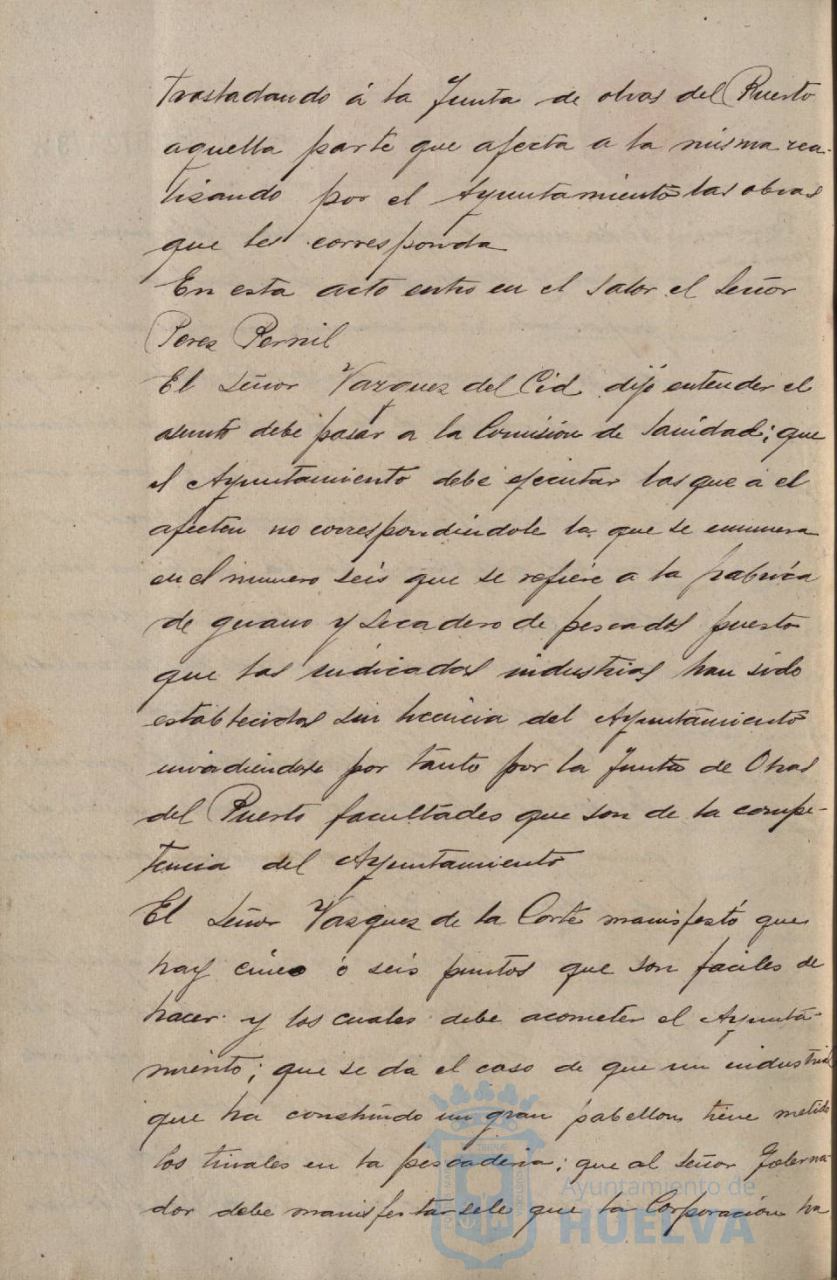 trasladando á la Junta de obras del Puerto
aquella parte que afecta a la misma rea-
lizando por el Ayuntamiento las obras
que les corresponda
En esta acto entro en el salon el Señor
Perez Pernil
El Señor Vazquez del Cid dijo entender el
asunto debe pasar a la Comisión de Sanidad; que
el Ayuntamiento debe ejecutar las que á el
afecten no correspondiendole la que se enumera
en el numero seis que se refiere a la fabrica
de guano y secadero de pescados puesto
que las indicadas industrias han sido
establecidas sin licencia del Ayuntamiento
invadiendose por tanto por la Junta de Obras
del Puerto facultades que son de la compe-
tencia del Ayuntamiento
El Señor Vazquez de la Corte manifestó que
hay cinco ó seis puntos que son faciles de
hacer y los cuales debe acometer el Ayunta-
miento; que se da el caso de que un industrial
que ha construido un gran pabellon tiene metido
los en la pescaderia; que al Señor Goberna-
dor debe manifestarsele que la Corporación ha
Ayuntamiento de
HUELVA